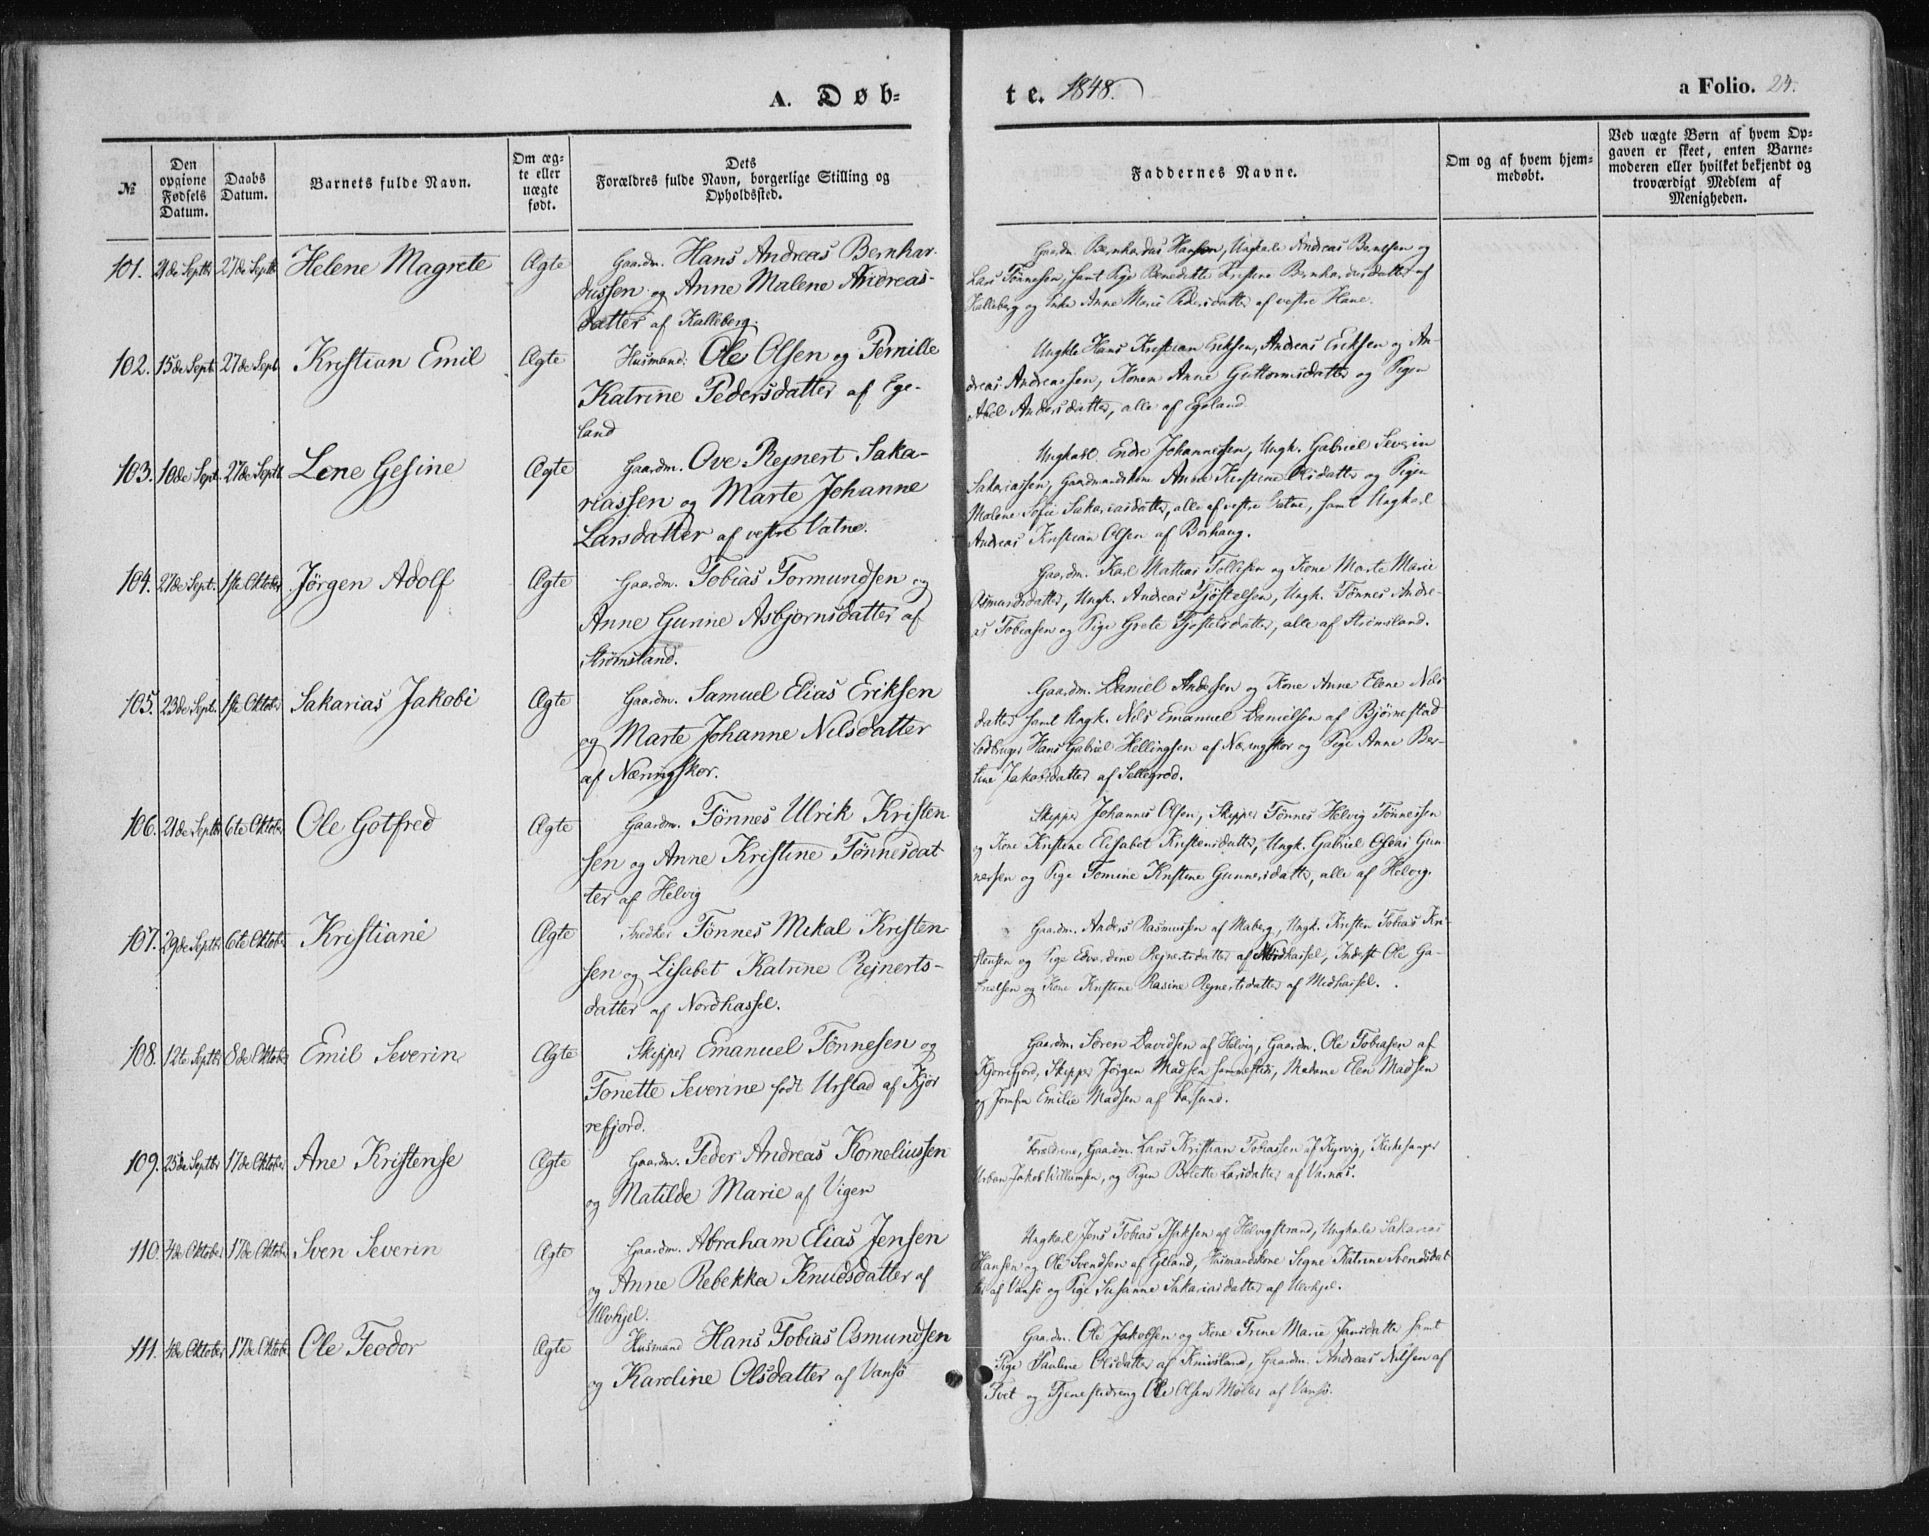 A. Døb=
te. 1848.
a Folio. 24.
№
Den opgivne Fødsels Datum.
Daabs Datum.
Barnets fulde Navn.
Om æg-te eller uægte født.
Dets Forældres fulde Navn, borgerlige Stilling og Opholdssted.
Faddernes Navne.
Om og af hvem hjem-medøbt.
Ved uægte Børn af hvem Op-gaven er skeet, enten Barne-moderen eller hvilket bekjendt og troværdigt Medlem af Menigheden.
101. 21de Septbr 27de Septb Helene Magrete Ægte Gaardm. Hans Andreas Bernhar-
dussen og Anne Malene Andreas-
datter af Kalleberg.
Gaardm. Bernhardus Hansen, Ungkarle Andreas Berntsen og
Lars Tønnesen, samt Pige Benedikte Kristine Bernhardusdatter af
Kalleberg og Enke Anne Marie Pedersdatter af vestre Hane.
102. 15de Sept. 27de Sept. Kristian Emil Ægte Husmand: Ole Olsen og Pernille
Katrine Pedersdatter af Ege-
land
Ungkle Hans Kristian Eriksen, Andreas Eriksen og An
dreas Andreassen, Konen Anne Guttormsdatter og Pigen
Abel Andersdatter, alle af Egeland
103. 10de Sept. 27de Septb Lene Gesine Ægte Gaardm. Ove Rejnert Saka-
riassen og Marte Johanne
Larsdatter af vestre Vatne.
Ungkarl Endre Johannessen, Ungk. Gabriel Severin
Sakariassen, Gaardmandskone Anne Kirstine Olsdatter og Pigen
Malene Sofie Sakariasdatter, alle af vestre Vatne, samt Ungkarl
Andreas Kristian Olsen af Borhaug.
104. 27de Sept. 1ste Oktober Jørgen Adolf Ægte Gaardm. Tobias Tormundsen og
Anne Gurine Asbjørnsdatter af
Strømsland.
Gaardm. Karl Mattias Tollisen og Kone Marte Marie
Osmundsdatter, Ungk. Andreas Tjøstelsen, Ungk. Tønnes Andre-
as Tobiasen og Pige Grete Tjøstelsdatter, alle af Strømsland.
105. 23de Sept. 1ste Oktober Sakarias Jakobi Ægte Gaardm. Samuel Elias Eriksen
og Marte Johanne Nilsdatter
af Næningskor.
Gaardm. Daniel Andersen og Kone Anne Elene Nils
datter samt Ungk. Nils Emanuel Danielsen af Bjørnestad
Lodbruger Hans Gabriel Hellingsen af Næningskor og Pige Anne Ber-
tine Jakobsdatter af Sellegrod.
106. 21de Septbr 6te Oktober Ole Gotfred Ægte Gaardm. Tönnes Ulrik Kristen
sen og Anne Kristine Tönnesdat
ter af Helvig
Skipper Johannes Olsen, Skipper Tønnes Helvig Tønnessen
og Kone Kristine Elisabet Kristensdatter, Ungk. Gabriel Oseas Gun
nersen og Pige Tomine Kristine Gunnersdatter, alle af Helvig.
107. 29de Septbr 6te Oktober Kristiane Ægte Snedker Tönnes Mikal Kristen-
sen og Lisabet Katrine Rejnerts-
datter af Nordhassel.
Gaardm. Anders Rasmussen af Maberg, Ungk. Kristen Tobias Kri-
stensen og Pige Edvardine Rejnertsdatter af Nordhassel, Inderst Ole Ga-
brielsen og Kone Kirstine Rasine Rejnertsdatter af Midhassel.
108. 12te Septbr 8de Oktober Emil Severin Ægte Skipper Emanuel Tönnesen og
Tonette Severine født Urstad af Kjør
refjord.
Gaardm. Sören Davidsen af Helvig, Gaardm. Ole Tobiasen af
Kjørrefjord, Skipper Jörgen Madsen sammesteds, Madame Elen Madsen
og Jomfru Emilie Madsen af Farsund.
109. 25de Septbr 17de Oktober Ane Kristense Ægte Gaardm. Peder Andreas Korneliussen
og Matilde Marie af Vigen
Forældrene, Gaardm. Lars Kristian Tobiassen af Kjørvig, Kirkesanger
Urban Jakob Willumsen, og Pigen Bolette Larsdatter af Varnæs.
110. 4de Oktober 17de Oktober Sven Severin Ægte Gaardm. Abraham Elias Jensen
og Anne Rebekka Knudsdatter af
Ulvhjel.
Ungkarl Jens Tobias Isaksen af Helvigstrand, Ungkarle Sakarias
Hansen og Ole Svendsen af Eteland, Husmandskone Segne Katrine Svendsdat
ter af Vansø og Pige Susanne Sakariasdatter af Ulevhjel.
111. 4de Oktober 17de Oktober Ole Teodor Ægte Husmand Hans Tobias Osmundsen
og Karoline Olsdatter af Vansö
Gaardm. Ole Jakobsen og Kone Trine Marie Jansdatter samt
Pige Paulene Olsdatter af Knivsland, Gaardm. Andreas Nilsen af
Tvet og Tjenestedreng Ole Olsen Møller af Vansö.